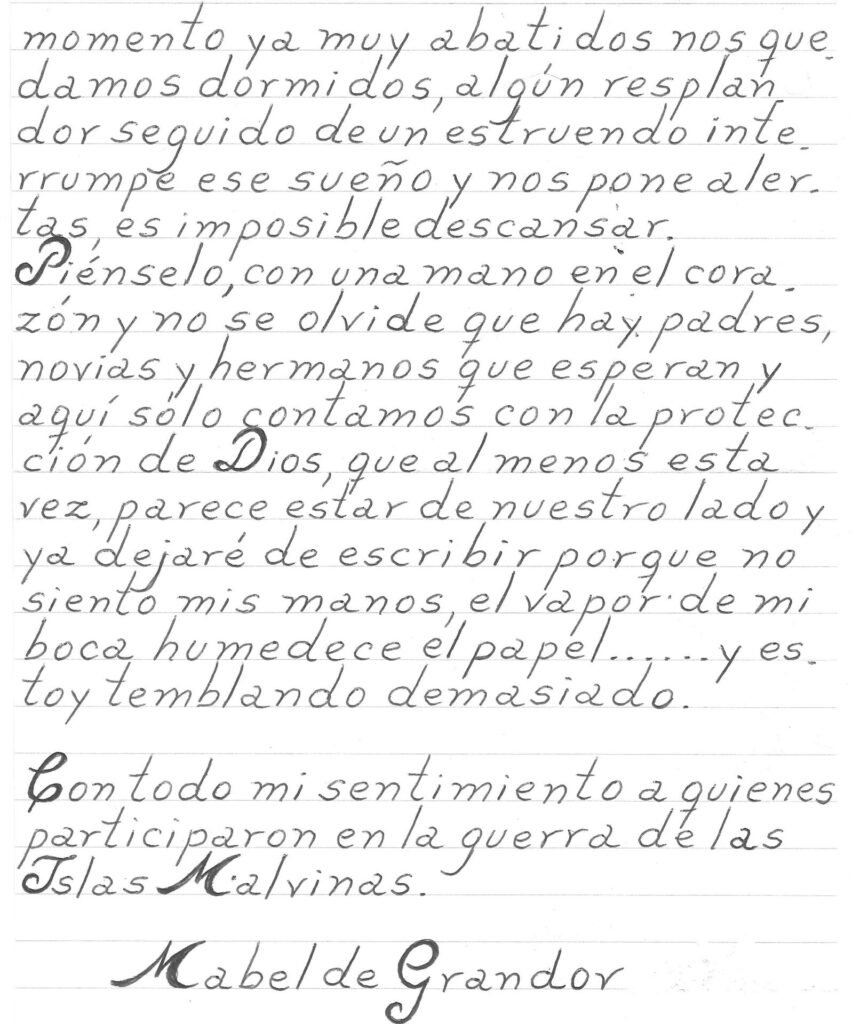 momento ya muy abatidos nos que_
damos dormidos, algún resplan_
dor seguido de un estruendo inte_
rrumpe ese sueño y nos pone aler_
tas, es imposible descansar.
Piénselo, con una mano en el cora_
zón y no se olvide que hay padres,
novias y hermanos que esperan y
aquí sólo contamos con la protec_
ción de Dios, que al menos esta
vez, parece estar de nuestro lado y
ya dejaré de escribir porque no
siento mis manos, el vapor de mi
boca humedece el papel.......y es_
toy temblando demasiado.
Con todo mi sentimiento a quienes
participaron en la guerra de las
Islas Malvinas.
Mabel de Grandor